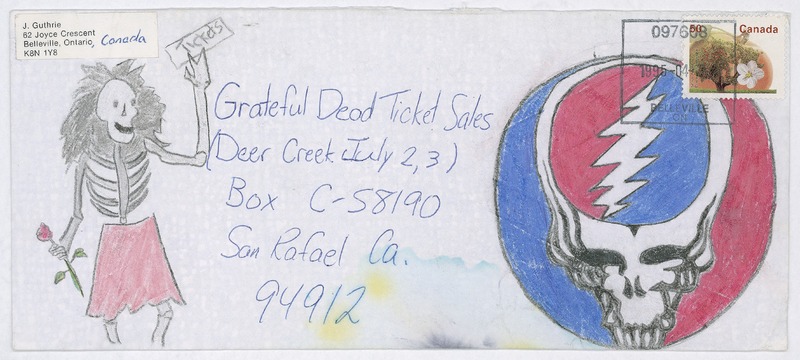 J. Guthrie
62 Joyce Crescent
Belleville, Ontario, Canada
K8N 1Y8
Tickets
Grateful Dead Ticket Sales
(Deer Creek July 2,3)
Box C-58190
San Rafael Ca.
94912
Canada
BELLEVILLE